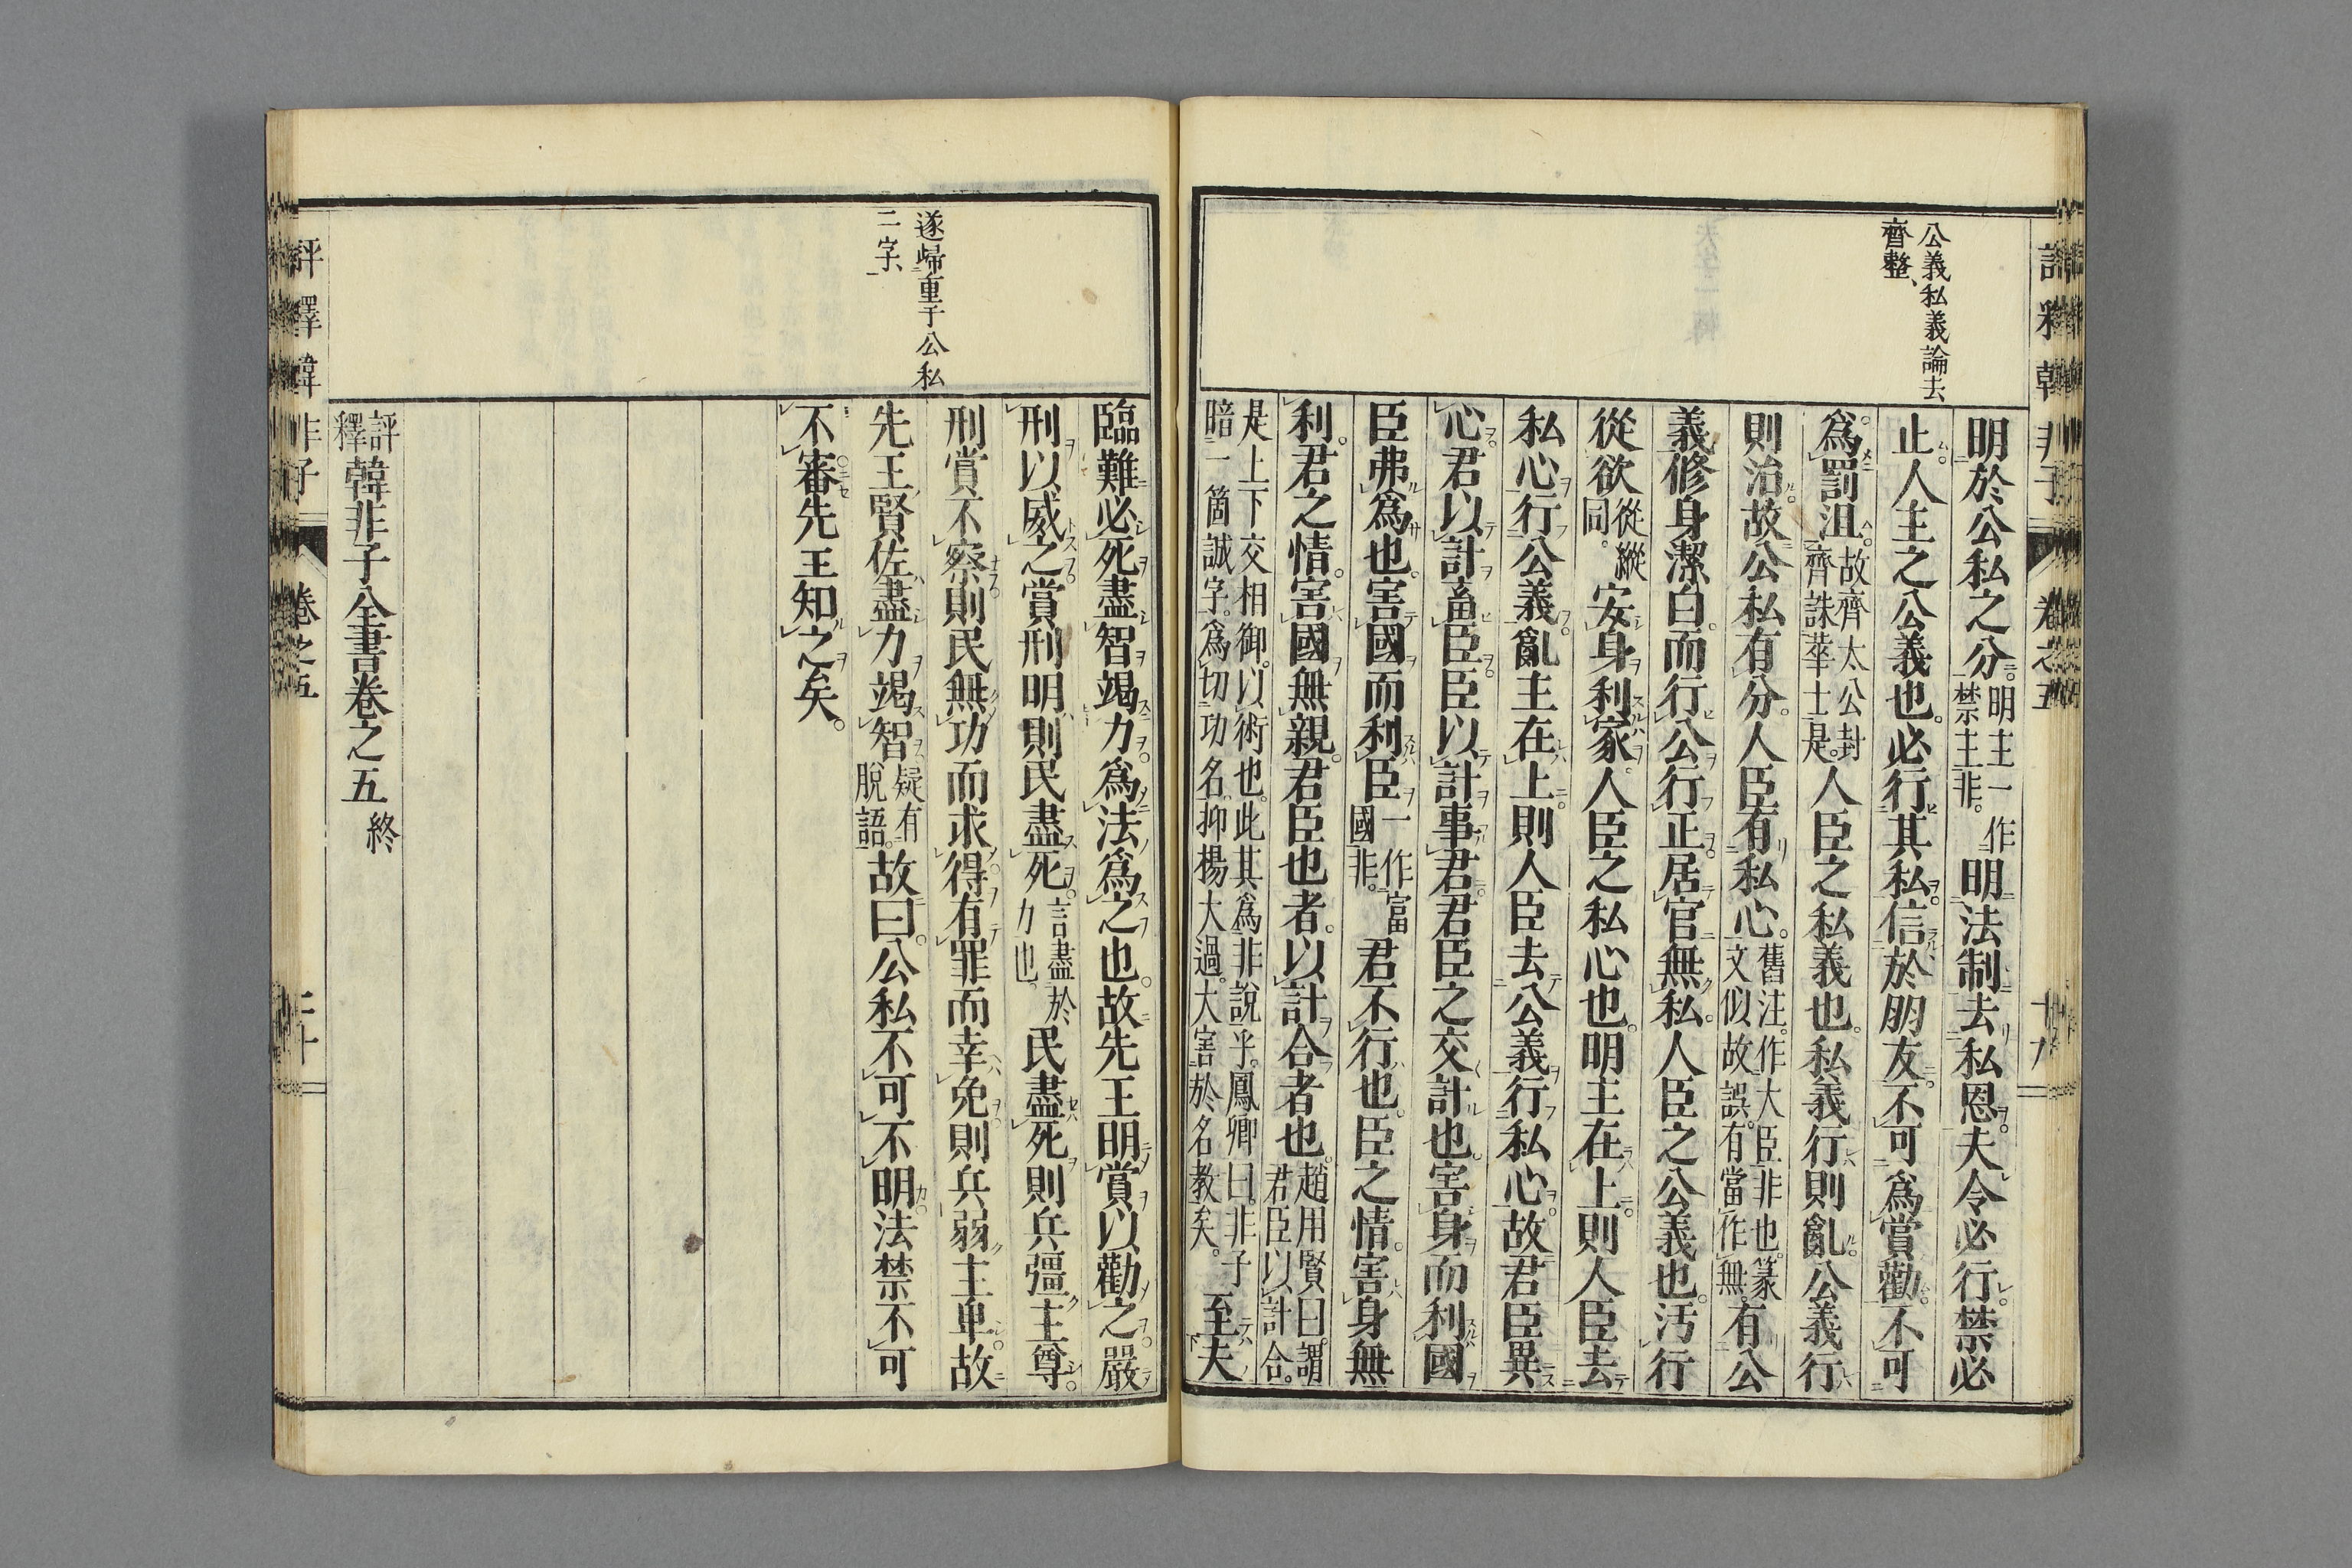 公義私義論去
齊整、
明於公私之分。明主一作禁主非。明法制去私恩。夫令必行。禁必
止。人主之公義也。必行其私。信於朋友。不可爲賞勸。不可
爲罰沮。故齊太公封齊誅華士是。人臣之私義也。私義行則亂。公義行
則治。故公私有分。人臣有私心。舊注。作大臣非也。篆文似故誤。有當作無。有公
義。修身潔白。而行公行正。居官無私。人臣之公義也。汚行
從欲。從縱同。安身利家。人臣之私心也。明主在上。則人臣去
私心行公義。亂主在上。則人臣去公義行私心。故君臣異
心。君以計畜臣。臣以計事君。君臣之交計也。害身而利國
臣弗爲也。害國而利臣一作富國非。君不行也。臣之情。害身無
利。君之情。害國無親。君臣也者。以計合者也。趙用賢曰。謂君臣以計合。
是上下交相御。以術也。此其爲非說乎。鳳卿曰。非子暗一箇誠字。爲切功名。抑揚大過。大害於名教矣。至夫
評釋韓非子
卷之五
十九
遂歸重于公私
二字、
臨難必死。盡智竭力。爲法爲之也。故先王明賞以勸之。嚴
刑以威之。賞刑明。則民盡死。言盡於力也。民盡死。則兵彊主尊。
刑賞不察。則民無功而求得。有罪而幸免。則兵弱主卑。故
先王賢佐盡力竭智。疑有脫語。故曰。公私不可不明。法禁不可
不審。先王知之矣。
評釋韓非子全書卷之五終
評釋韓非子
卷之五
二十